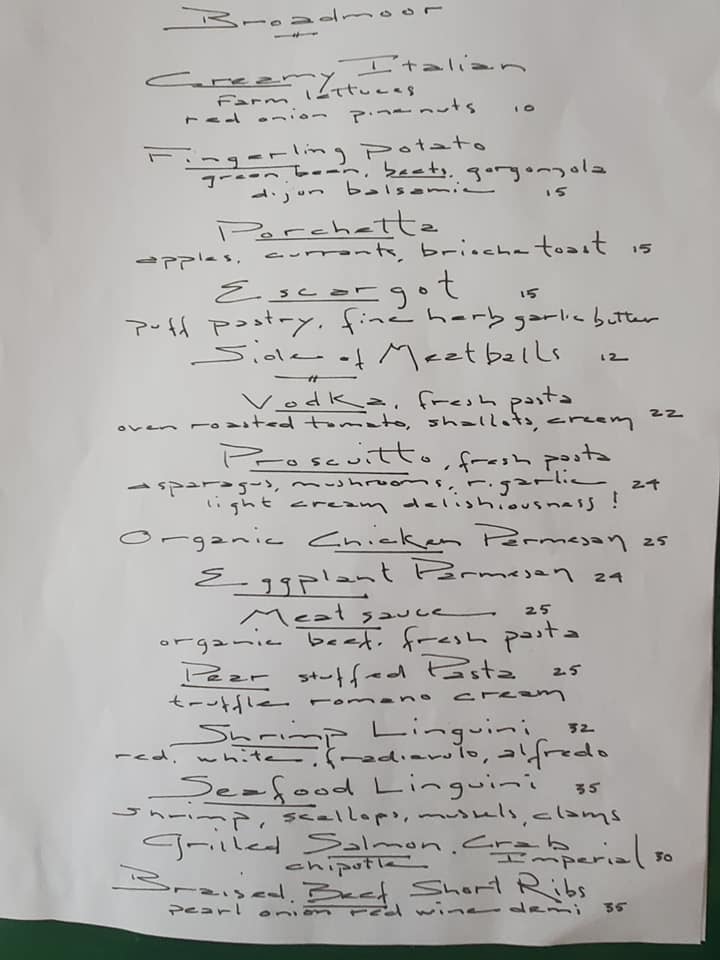 Broadmoor
Creamy Italian
Farm lettuces
red onion pinenuts 10
Fingerling potato
green bean, beets, gorgonzola
dijon balsamic 15
Porchetta
apples, currants, brioche toast 15
Escargot 15
puff pastry, fine herb garlic butter
Side of Meatballs 12
Vodka, fresh pasta
oven roasted tomato, shallots, cream 22
Proscuitto, fresh pasta
asparagus, mushrooms, r. garlic 24
light cream delishiousness!
Organic Chicken Parmesan 25
Eggplant Parmesan 24
Meat sauce 25
organic beef, fresh pasta
Pear stuffed Pasta 25
truffle romano cream
Shrimp Linguini 32
red, white, fradiavolo, alfredo
Seafood Linguini 35
shrimp, scallops, mussels, clams
Grilled Salmon, Crab
chipotle Imperial 30
Braised Beef Short Ribs
pearl onion red wine demi 35